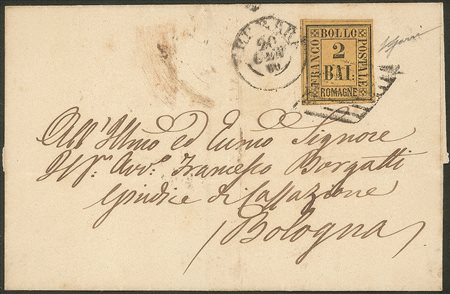 20
GEN
60
FRANCO BOLLO POSTALE
2
BAI.
ROMAGNE
All'Illmo ed Eccmo Signore
Il Sig. Avvo. Francesco Borgatti
Giudice di Cassazione
Bologna